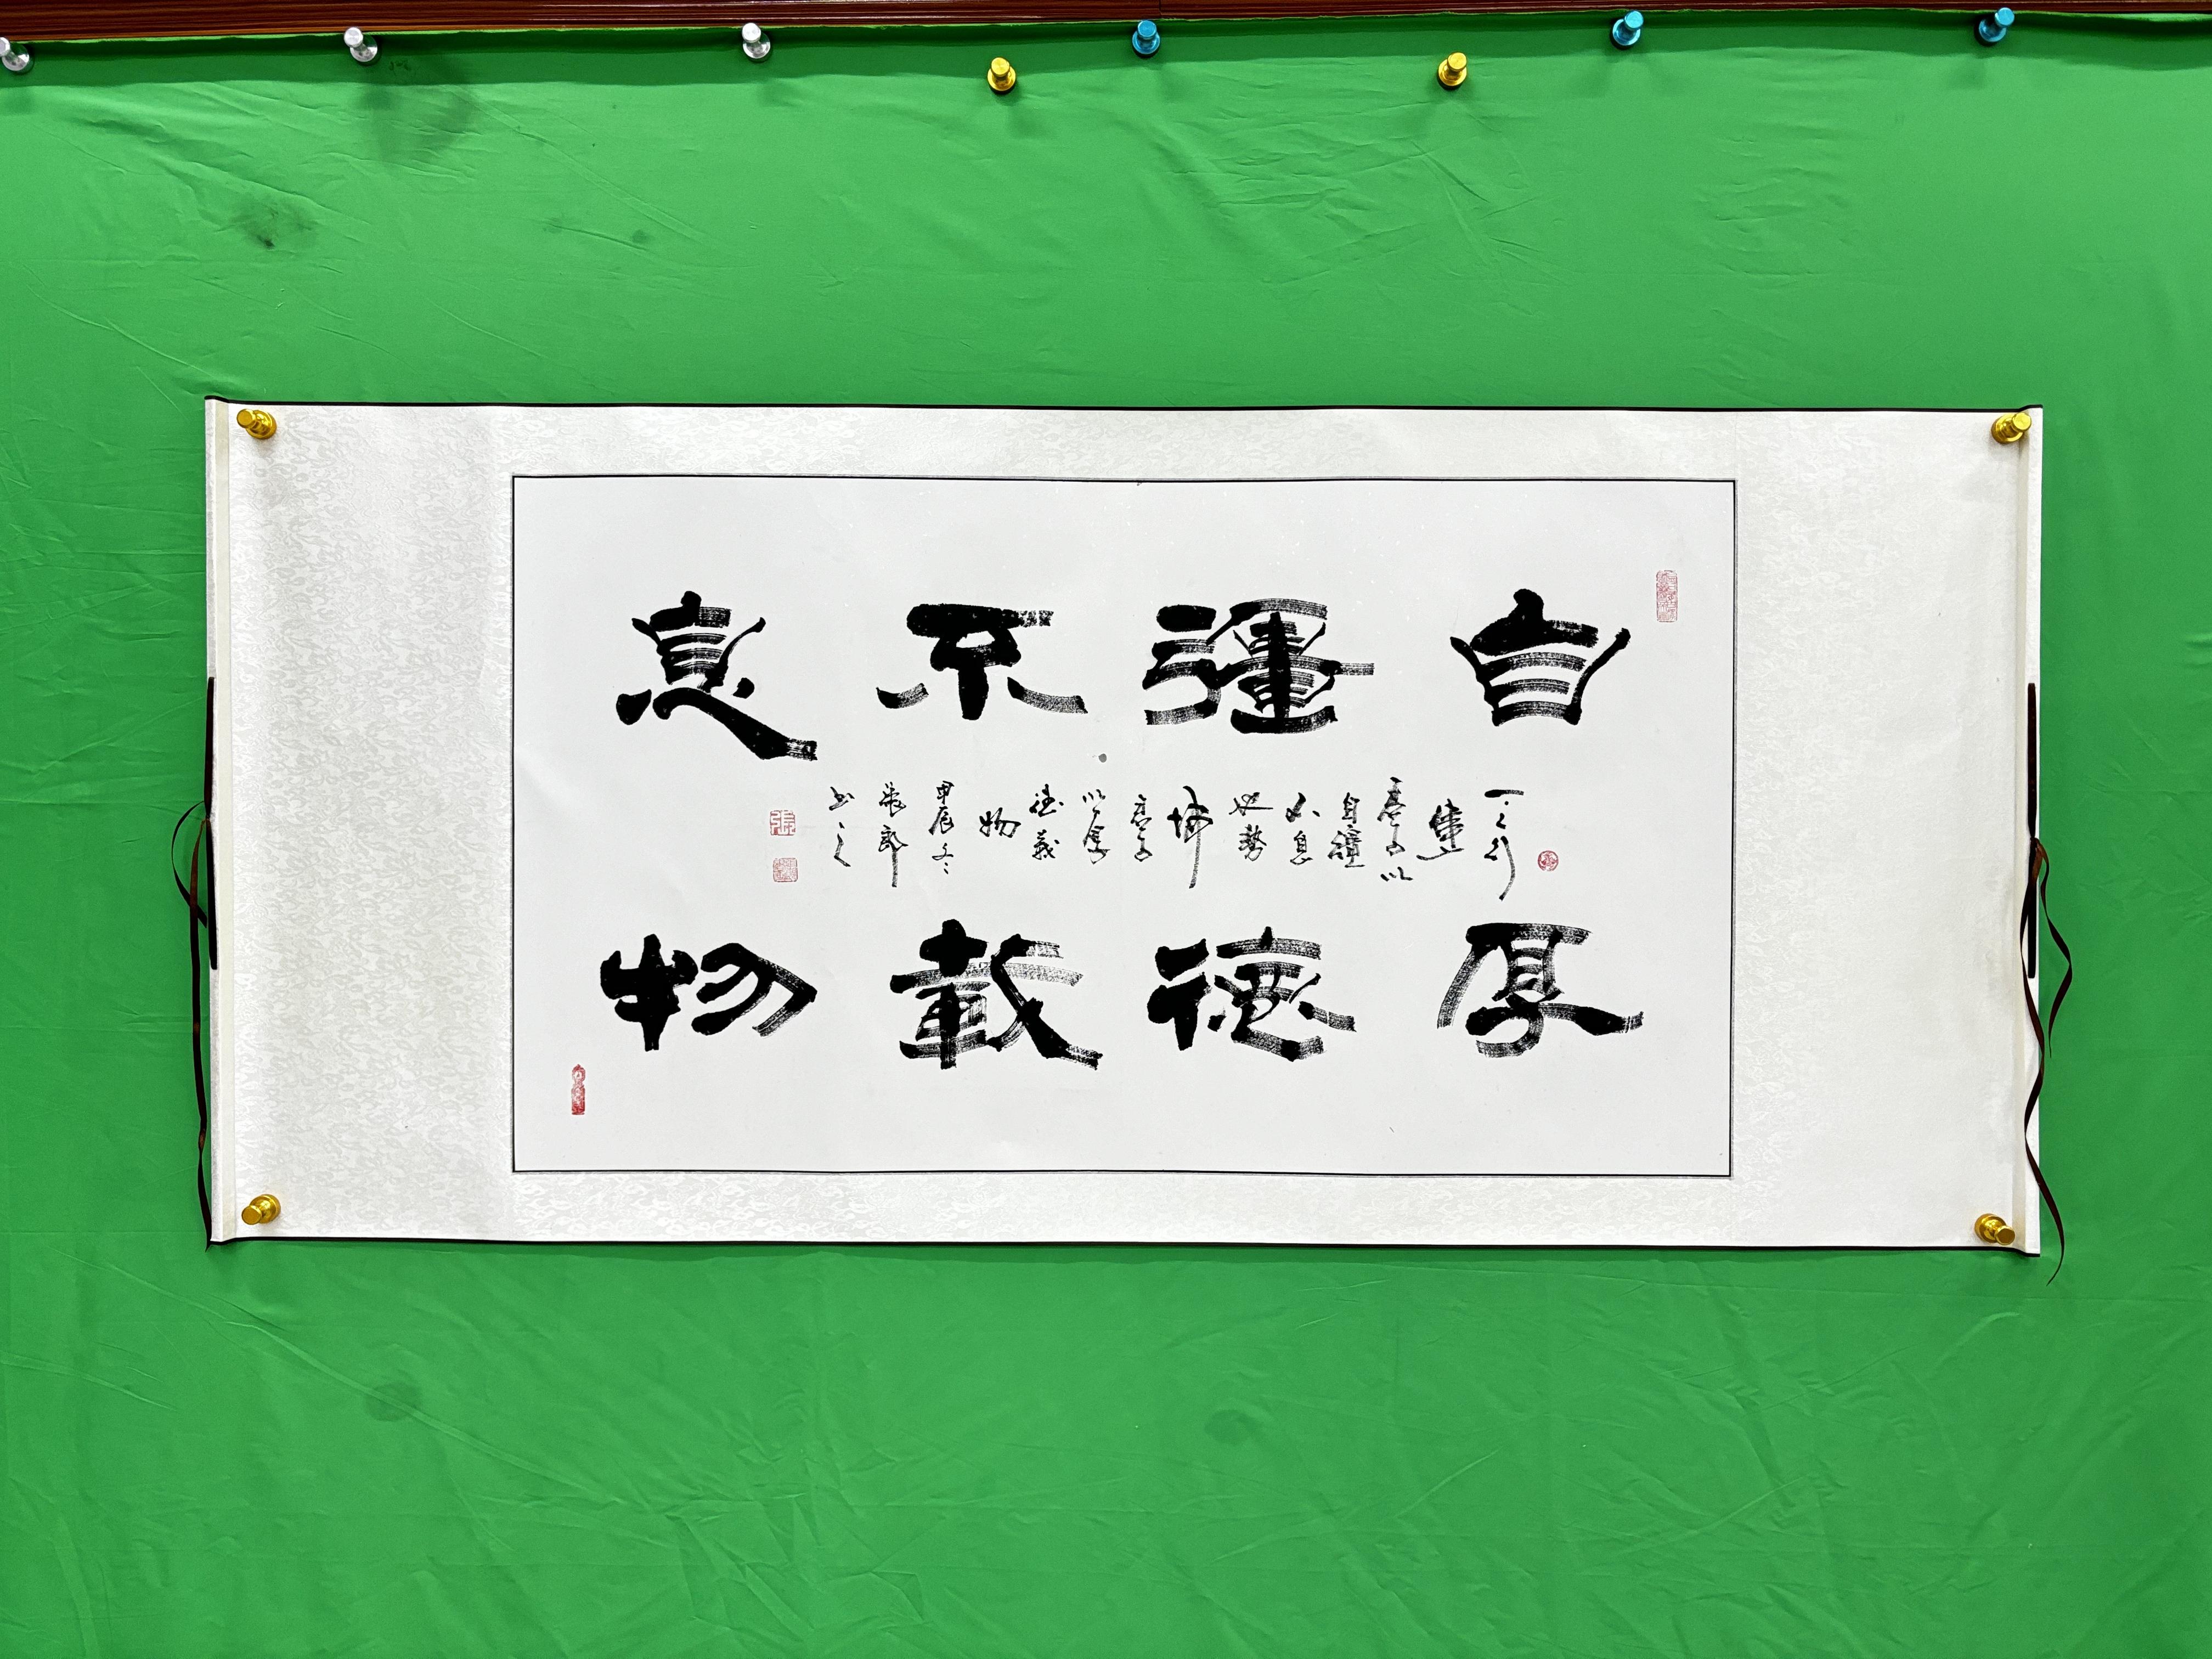 自彊不息
天行
健
君子以
自彊
不息
地勢
坤
君子
以厚
德載
物
甲辰冬
书之
張
厚德載物